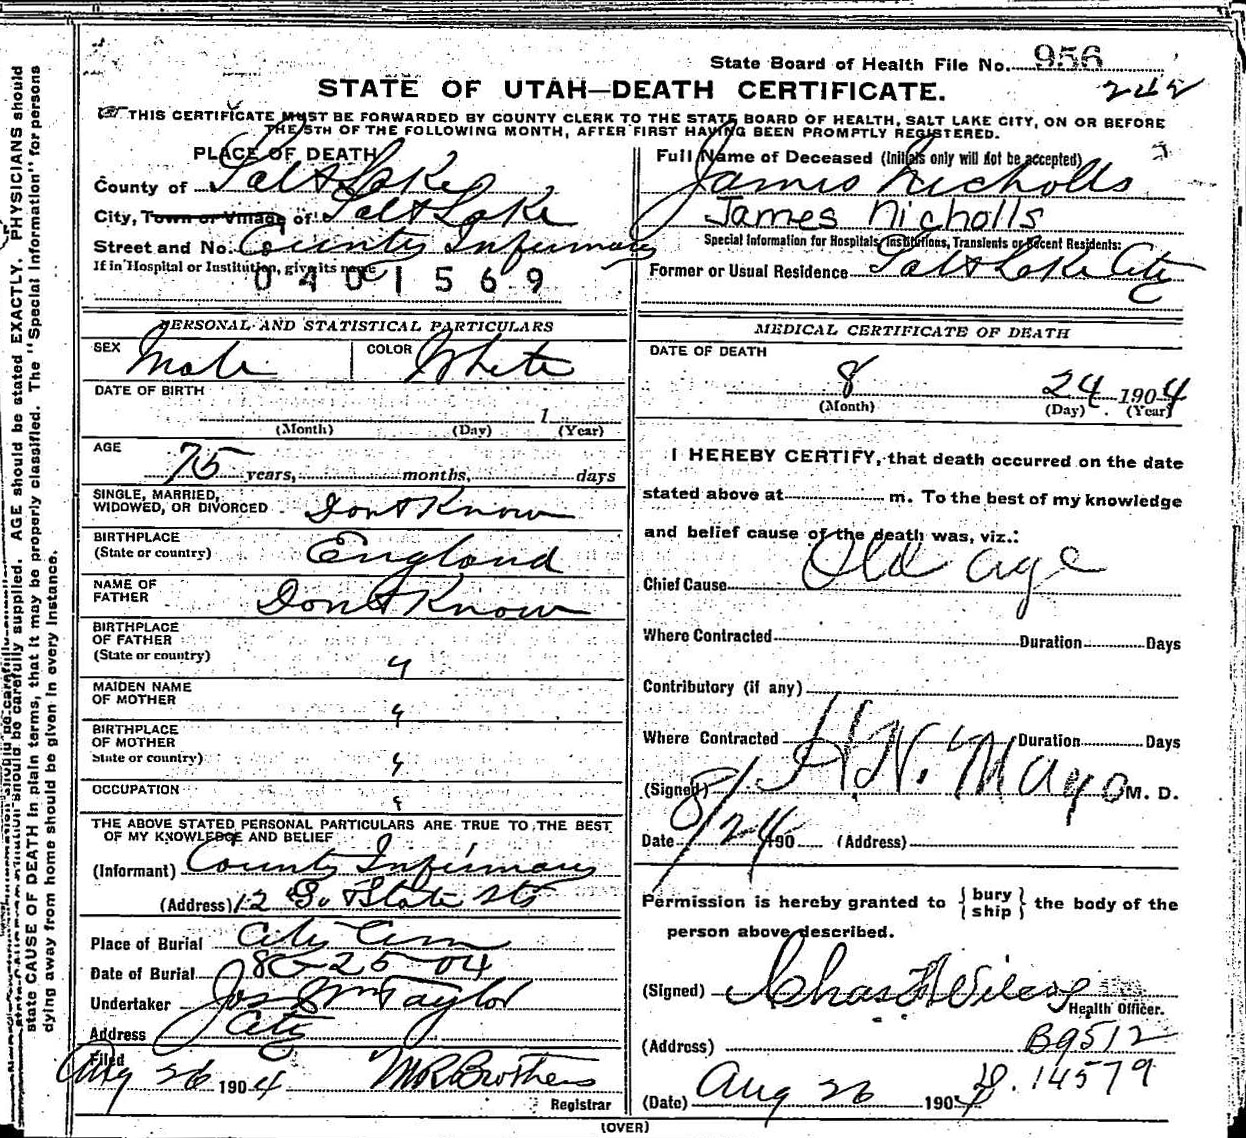 State Board of Health File No. 956
STATE OF UTAH—DEATH CERTIFICATE.
THIS CERTIFICATE MUST BE FORWARDED BY COUNTY CLERK TO THE STATE BOARD OF HEALTH, SALT LAKE CITY, ON OR BEFORE
THE 5TH OF THE FOLLOWING MONTH, AFTER FIRST HAVING BEEN PROMPTLY REGISTERED.
PLACE OF DEATH
County of Salt Lake
City, Town or Village of Salt Lake
Street and No. Co County Infirmary
If in Hospital or Institution, give its name
0401569
Full Name of Deceased (Initials only will not be accepted)
James Nicholls
James Nicholls
Special Information for Hospitals, Institutions, Transients or Recent Residents:
Former or Usual Residence Salt Lake City
PERSONAL AND STATISTICAL PARTICULARS
SEX Male COLOR White
DATE OF BIRTH
1
(Month) (Day) (Year)
AGE
75 years, months, days
SINGLE, MARRIED,
WIDOWED, OR DIVORCED Dont Know
BIRTHPLACE
(State or country) England
NAME OF
FATHER Dont Know
BIRTHPLACE
OF FATHER
(State or country) "
MAIDEN NAME
OF MOTHER "
BIRTHPLACE
OF MOTHER
State or country) "
OCCUPATION "
THE ABOVE STATED PERSONAL PARTICULARS ARE TRUE TO THE BEST
OF MY KNOWLEDGE AND BELIEF
(Informant) County Infirmary
(Address) 12 So & State Sts
Place of Burial City Cem
Date of Burial 8-25-04
Undertaker Jos Wm Taylor
Address City
Filed
Aug 26 1904 M R Brothers
Registrar
MEDICAL CERTIFICATE OF DEATH
DATE OF DEATH
8 24 1904
(Month) (Day) (Year)
I HEREBY CERTIFY, that death occurred on the date
stated above at m. To the best of my knowledge
and belief cause of the death was, viz.:
Chief Cause Old age
Where Contracted Duration Days
Contributory (if any)
Where Contracted Duration Days
(Signed) H.N. Mayo M. D.
Date 8/24 190 (Address)
Permission is hereby granted to { bury
ship } the body of the
person above described.
(Signed) Chas F Wilcox
Health Officer.
(Address) B9512
D.14579
(Date) Aug 26 1904
(OVER)
should be carefully supplied. AGE should be stated EXACTLY. PHYSICIANS should
state CAUSE OF DEATH in plain terms, that it may be properly classified. The "Special Information" for persons
dying away from home should be given in every instance.